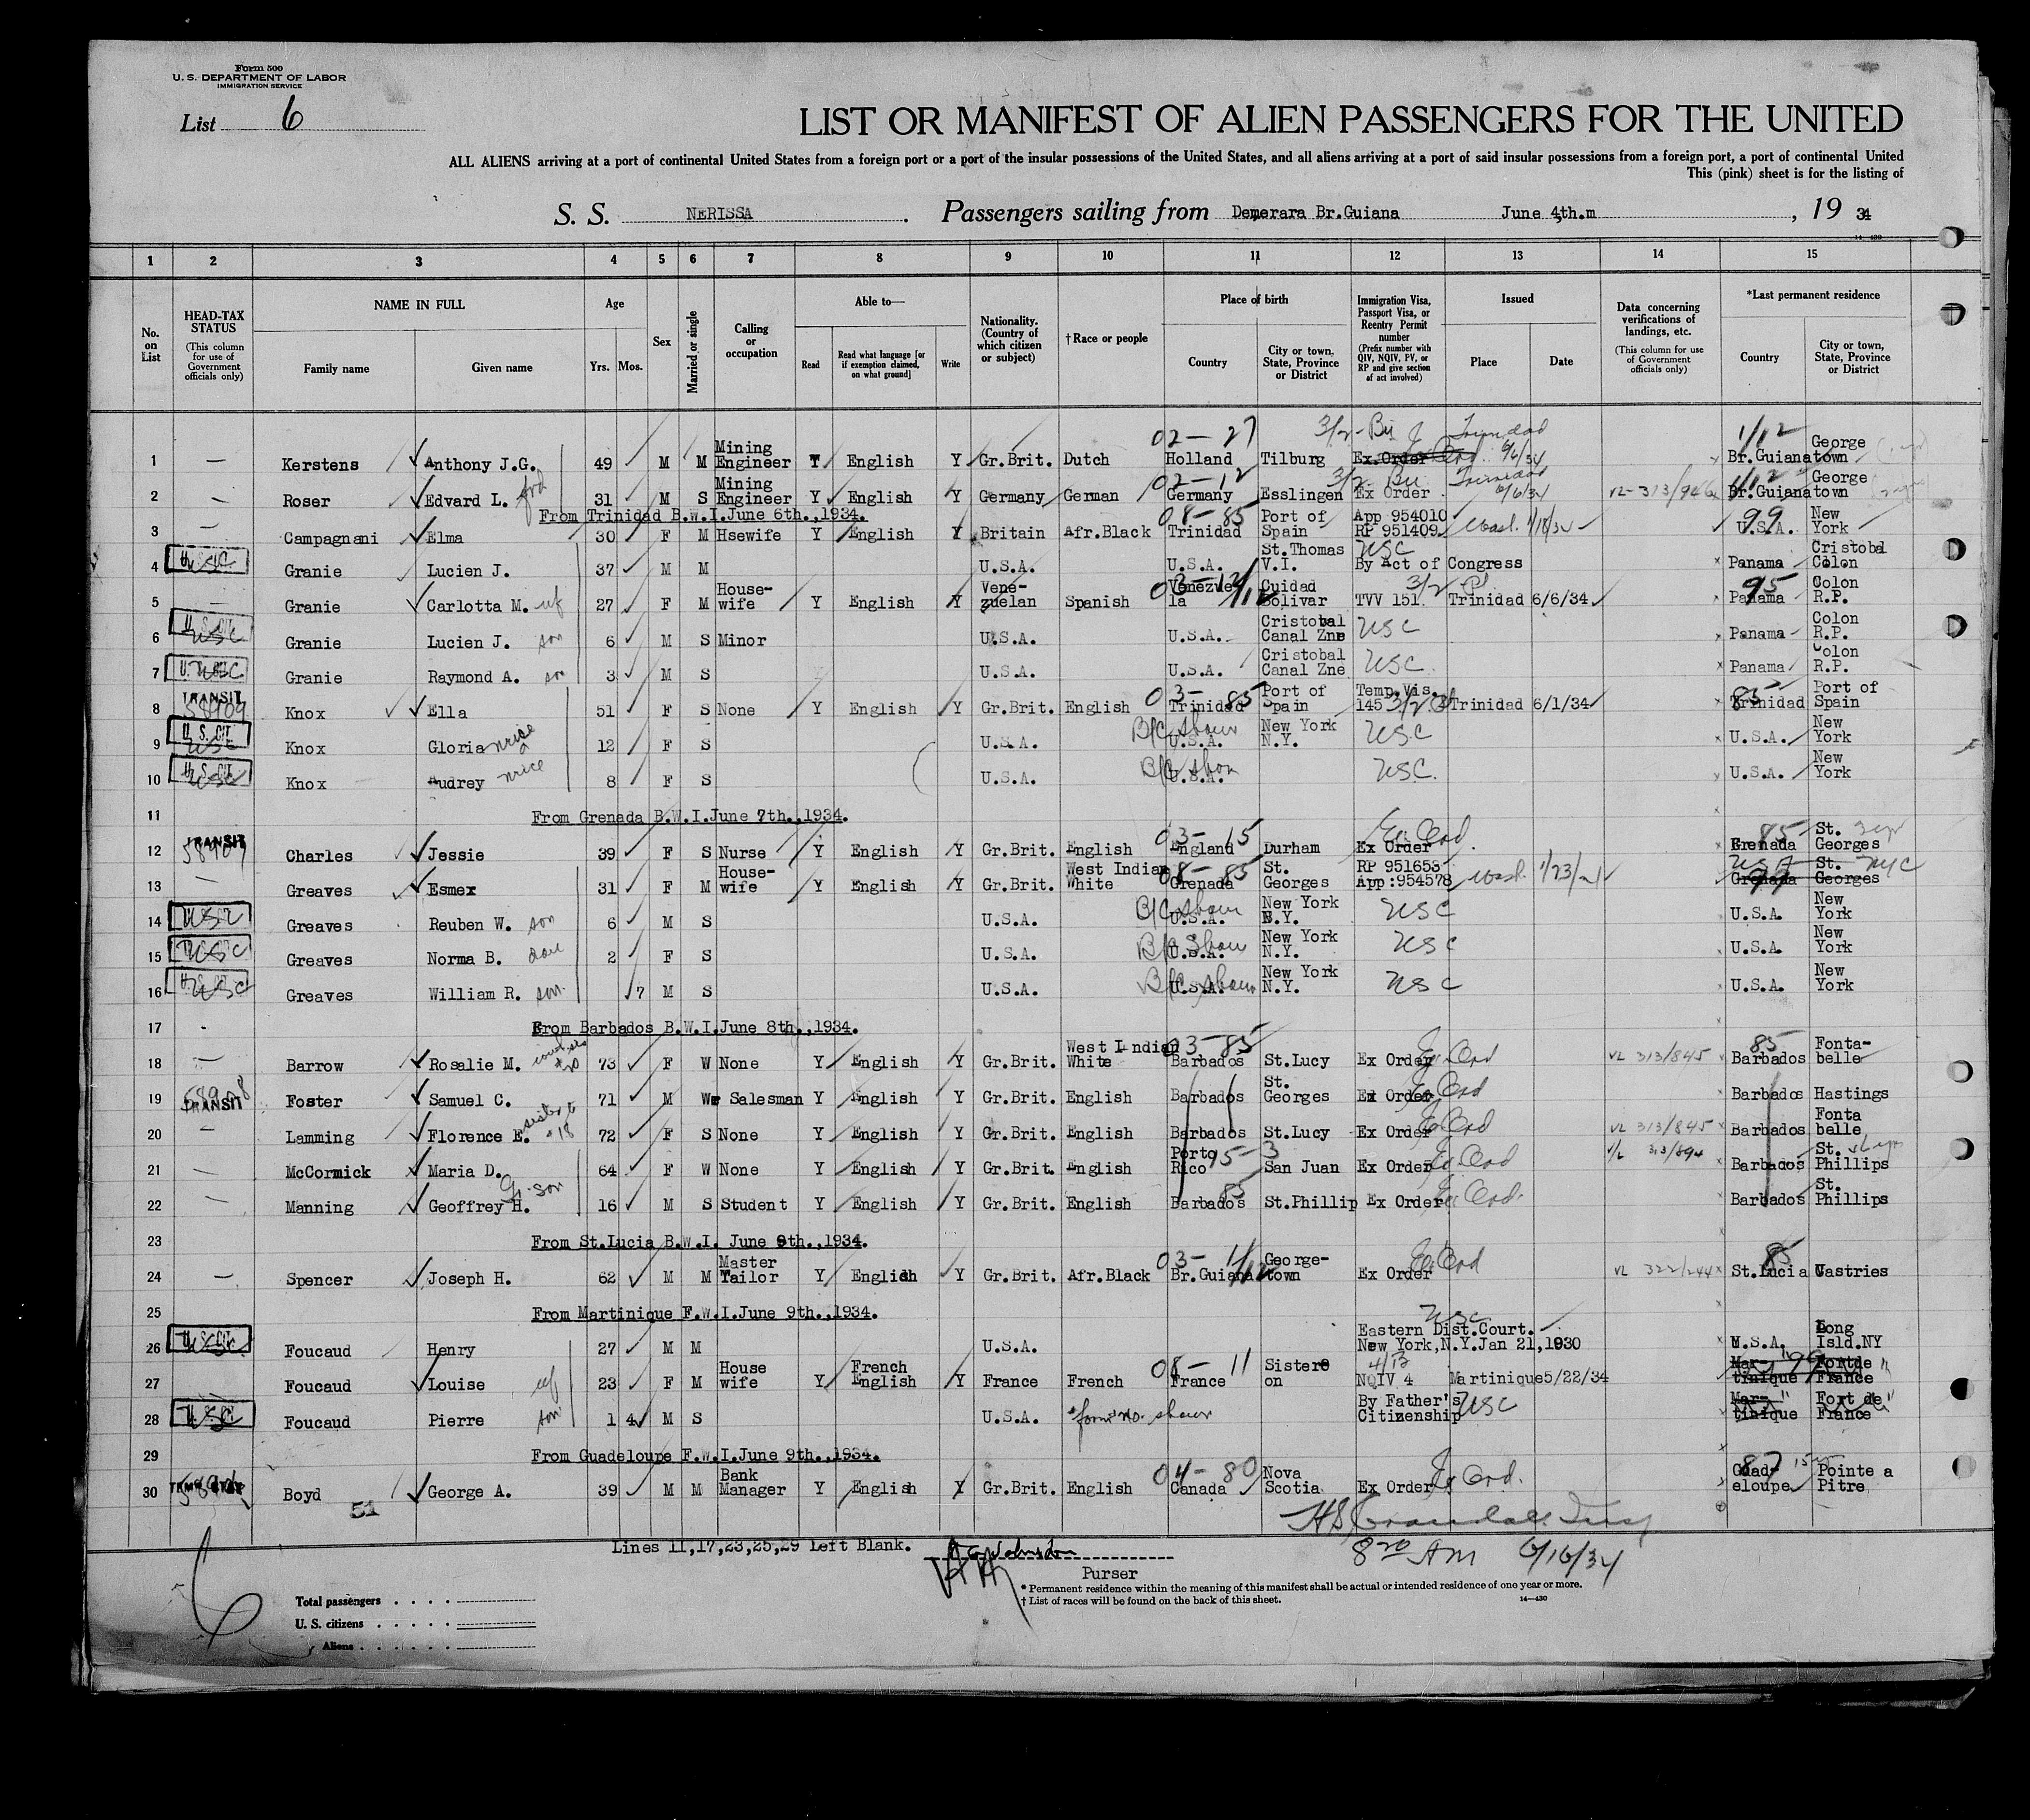 Form 500
U. S. DEPARTMENT OF LABOR
IMMIGRATION SERVICE
List 6
LIST OR MANIFEST OF ALIEN PASSENGERS FOR THE UNITED
ALL ALIENS arriving at a port of continental United States from a foreign port or a port of the insular possessions of the United States, and all aliens arriving at a port of said insular possessions from a foreign port, a port of continental United
This (pink) sheet is for the listing of
S. S. NERISSA. Passengers sailing from Demerara Br.Guiana June 4th.m, 19 34
14—430
1 2 3 4 5 6 7 8 9 10 11 12 13 14 15
No. on List
HEAD-TAX STATUS (This column for use of Government officials only)
NAME IN FULL Family name Given name
Age Yrs. Mos.
Sex
Married or single
Calling or occupation
Able to— Read Read what language [or if exemption claimed, on what ground] Write
Nationality. (Country of which citizen or subject)
†Race or people
Place of birth Country City or town, State, Province or District
Immigration Visa, Passport Visa, or Reentry Permit number (Prefix number with QIV, NQIV, PV, or RP and give section of act involved)
Issued Place Date
Data concerning verifications of landings, etc. (This column for use of Government officials only)
*Last permanent residence Country City or town, State, Province or District
1 — Kerstens Anthony J.G. 49 M M Mining Engineer Y English Y Gr.Brit. Dutch 02-27 Holland Tilburg 3/2 Ex Order Trinidad 6/6/34 1/12 Br.Guiana George town
2 — Roser Edvard L. 31 M S Mining Engineer Y English Y Germany German 02-12 Germany Esslingen 3/2 Ex Order Trinidad 6/6/34 VL-313/946 1/12 Br.Guiana George town
From Trinidad B.W.I.June 6th.,1934.
3 — Campagnani Elma 30 F M Hsewife Y English Y Britain Afr.Black 08-85 Trinidad Port of Spain App 954010 RP 951409 Wash. 1/18/34 99 U.S.A. New York
4 USC Granie Lucien J. 37 M M U.S.A. U.S.A. St.Thomas V.I. USC By Act of Congress Panama Cristobal Colon
5 — Granie Carlotta M. wf 27 F M House-wife Y English Y Vene-zuelan Spanish 03-1/12 Venezvela Cuidad Bolivar 3/2 TVV 151 Trinidad 6/6/34 95 Panama Colon R.P.
6 USC Granie Lucien J. son 6 M S Minor U.S.A. U.S.A. Cristobal Canal Zne USC Panama Colon R.P.
7 USC Granie Raymond A. son 3 M S U.S.A. U.S.A. Cristobal Canal Zne USC Panama Colon R.P.
8 TRANSIT 58909 Knox Ella 51 F S None Y English Y Gr.Brit. English 03-85 Trinidad Port of Spain Temp.Vis. 145 3/2 Trinidad 6/1/34 85 Trinidad Port of Spain
9 U.S. CIT USC Knox Gloria niece 12 F S U.S.A. B/C Shown U.S.A. New York N.Y. USC U.S.A. New York
10 U.S. CIT USC Knox Audrey niece 8 F S U.S.A. B/C Shown U.S.A. USC U.S.A. New York
11 From Grenada B.W.I.June 7th.,1934.
12 TRANSIT 58907 Charles Jessie 39 F S Nurse Y English Y Gr.Brit. English 03-15 England Durham Ex Ord Ex Order 85 Grenada St. Georges
13 — Greaves Esmex 31 F M House-wife Y English Y Gr.Brit. West Indian White 08-85 Grenada St. Georges RP 951653 App:954578 Wash. 1/23/ USA NYC 99 Grenada St. Georges
14 USC Greaves Reuben W. son 6 M S U.S.A. B/C Shown U.S.A. New York N.Y. USC U.S.A. New York
15 USC Greaves Norma B. dau 2 F S U.S.A. B/C Shown U.S.A. New York N.Y. USC U.S.A. New York
16 USC Greaves William R. son 7 M S U.S.A. B/C Shown U.S.A. New York N.Y. USC U.S.A. New York
17 From Barbados B.W.I.June 8th.,1934.
18 — Barrow Rosalie M. 73 F W None Y English Y Gr.Brit. West Indian White 03-85 Barbados St.Lucy Ex Order Ex Ord VL 313/845 85 Barbados Fonta-belle
19 58908 TRANSIT Foster Samuel C. 71 M W Salesman Y English Y Gr.Brit. English Barbados St. Georges Ex Order Ex Ord Barbados Hastings
20 — Lamming Florence E. sister to #18 72 F S None Y English Y Gr.Brit. English Barbados St.Lucy Ex Order Ex Ord VL 313/845 Barbados Fonta belle
21 — McCormick Maria D. 64 F W None Y English Y Gr.Brit. English Porto Rico 95-3 San Juan Ex Order Ex Ord VL 313/894 Barbados St. Phillips
22 — Manning Geoffrey H. G. son 16 M S Student Y English Y Gr.Brit. English 85 Barbados St.Phillip Ex Order Ex Ord. Barbados St. Phillips
23 From St.Lucia B.W.I. June 9th.,1934.
24 — Spencer Joseph H. 62 M M Master Tailor Y English Y Gr.Brit. Afr.Black 03-1/12 Br.Guiana George-town Ex Order Ex Ord VL 322/244 85 St.Lucia Castries
25 From Martinique F.W.I.June 9th.,1934.
26 U.S. CIT Foucaud Henry 27 M M U.S.A. USC Eastern Dist.Court. New York,N.Y.Jan 21,1930 U.S.A. Long Isld.NY
27 — Foucaud Louise wf 23 F M House wife Y French English Y France French 08-11 France Sistere on NQIV 4 Martinique 5/22/34 Mar-tinique 99 Fort de France
28 U.S. CIT Foucaud Pierre son 1 4 M S U.S.A. shown By Father's Citizenship USC Mar-tinique Fort de France
29 From Guadeloupe F.W.I.June 9th.,1934.
30 Boyd George A. 39 M M Bank Manager Y English Y Gr.Brit. English 04-80 Canada Nova Scotia Ex Order Ex Ord. 87 Guad-eloupe Pointe a Pitre
51
Lines 11,17,23,25,29 Left Blank.
Purser
8 30 AM 6/16/34
* Permanent residence within the meaning of this manifest shall be actual or intended residence of one year or more.
† List of races will be found on the back of this sheet.
14—430
6
Total passengers
U. S. citizens
Aliens